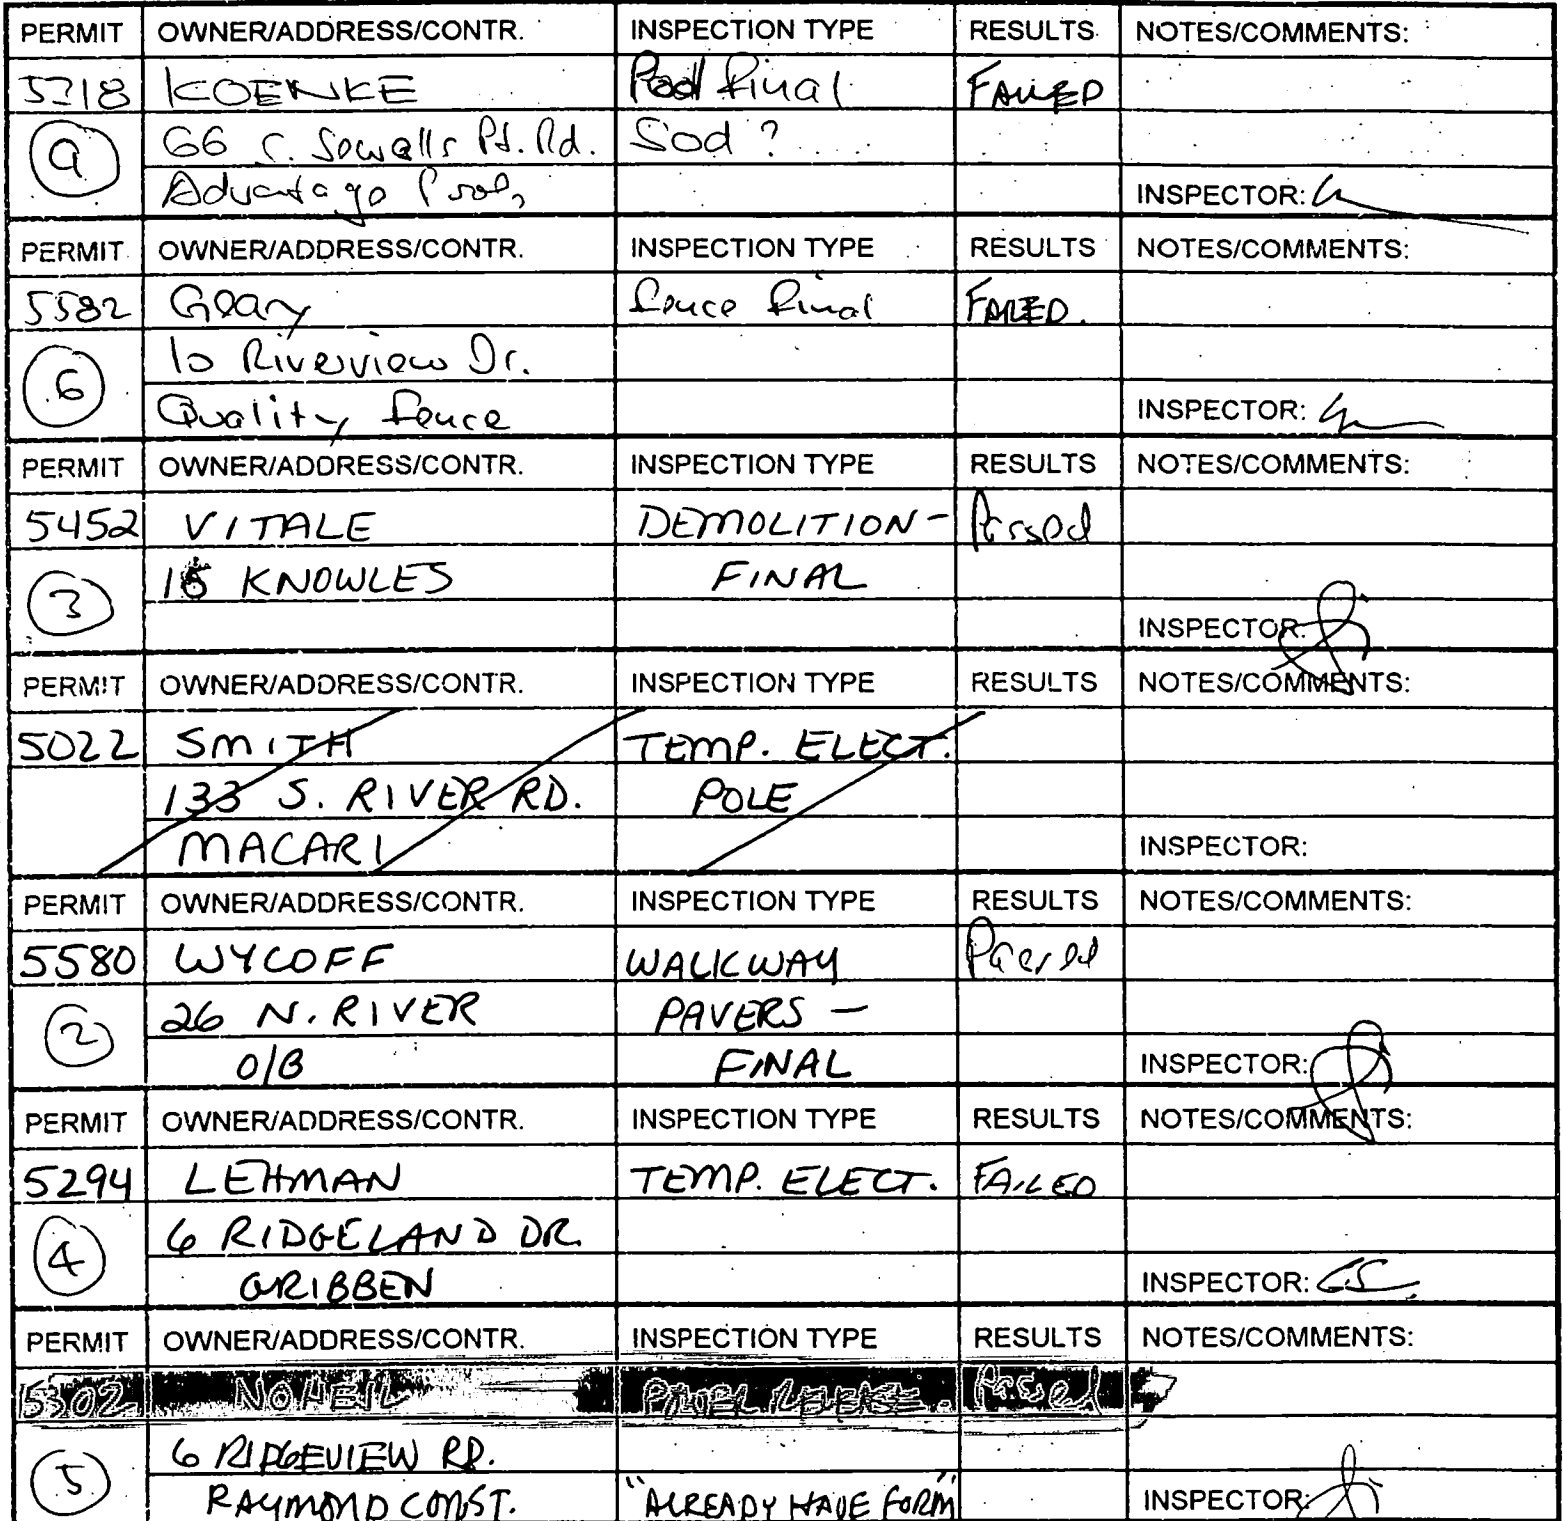 PERMIT OWNER/ADDRESS/CONTR. INSPECTION TYPE RESULTS NOTES/COMMENTS:
5218 KOENKE Pool Final FAILED
9 66 S. Sewalls Pt. Rd. Sod ?
Advantage Pools INSPECTOR:
PERMIT OWNER/ADDRESS/CONTR. INSPECTION TYPE RESULTS NOTES/COMMENTS:
5582 Geary Fence Final FAILED.
6 10 Riverview Dr.
Quality Fence INSPECTOR:
PERMIT OWNER/ADDRESS/CONTR. INSPECTION TYPE RESULTS NOTES/COMMENTS:
5452 VITALE DEMOLITION- Passed
3 KNOWLES FINAL
INSPECTOR:
PERMIT OWNER/ADDRESS/CONTR. INSPECTION TYPE RESULTS NOTES/COMMENTS:
5022 SMITH TEMP. ELECT.
133 S. RIVER RD. POLE
MACARI INSPECTOR:
PERMIT OWNER/ADDRESS/CONTR. INSPECTION TYPE RESULTS NOTES/COMMENTS:
5580 WYCOFF WALKWAY Passed
2 26 N. RIVER PAVERS -
O/B FINAL INSPECTOR:
PERMIT OWNER/ADDRESS/CONTR. INSPECTION TYPE RESULTS NOTES/COMMENTS:
5294 LEHMAN TEMP. ELECT. FAILED
4 6 RIDGELAND DR.
GRIBBEN INSPECTOR:
PERMIT OWNER/ADDRESS/CONTR. INSPECTION TYPE RESULTS NOTES/COMMENTS:
5302 NOHEIL POWER RELEASE Passed
5 6 RIDGEVIEW RD.
RAYMOND CONST. "ALREADY HAVE FORM" INSPECTOR: